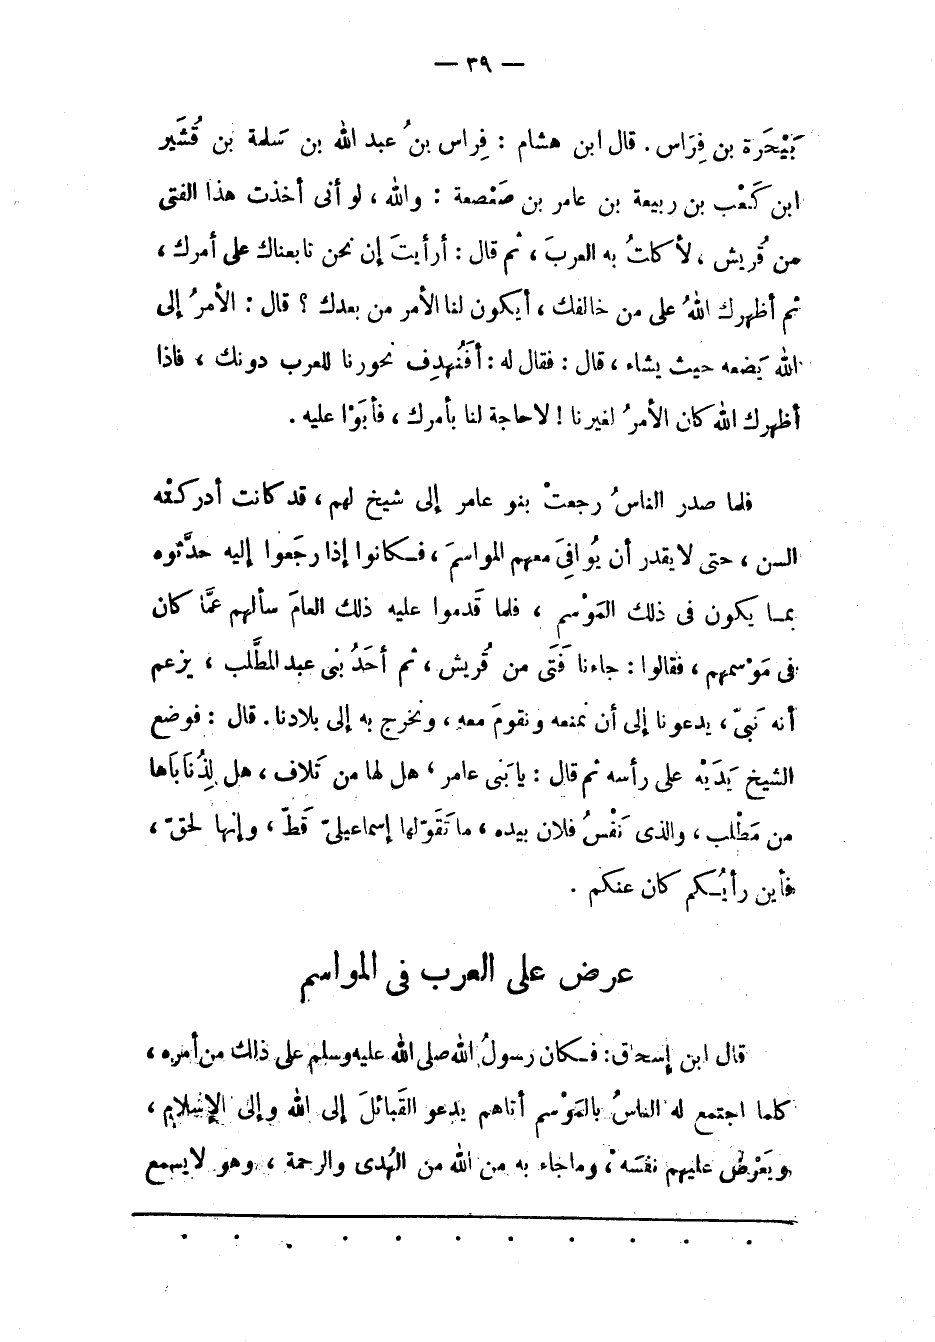 — ٣٩ —
بَيْحَرة بن فِرَاس . قال ابن هشام : فِراس بنُ عبد الله بن سَلمة بن قُشَير
ابن كَعْب بن ربيعة بن عامر بن صَعْصعة : والله ، لو أنى أخذت هذا الفتى
من قُريش ، لأكلتُ به العربَ ، ثم قال : أرأيتَ إن نحن تابعناك على أمرك ،
ثم أظهرك اللهُ على من خالفك ، أيكون لنا الأمر من بعدك ؟ قال : الأمرُ إلى
الله يَضعه حيث يشاء ، قال : فقال له : أفَتُهدِف نحورنا للعرب دونك ، فاذا
أظهرك الله كان الأمرُ لغيرنا ! لا حاجة لنا بأمرك ، فأبَوْا عليه .
فلما صدر الناسُ رجعتْ بنو عامر إلى شيخ لهم ، قد كانت أدركتْه
السن ، حتى لا يقدر أن يُوافىَ معهم المواسمَ ، فـكانوا إذا رجَعوا إليه حدَّثوه
بمـا يكون فى ذلك المَوْسم ، فلما قَدموا عليه ذلك العامَ سألهم عمَّا كان
فى مَوْسمهم ، فقالوا : جاءنا فَتًى من قُريش ، ثم أحَدُ بنى عبد المطَّلب ، يزعم
أنه نَبىّ ، يدعونا إلى أن نمنعه ونقومَ معه ، ونخرج به إلى بلادنا . قال : فوضع
الشيخ يَدَيْه على رأسه ثم قال : يا بَنى عامر ، هل لها من تَلاف ، هل لِذُنَاباها
من مَطْلب ، والذى نَفْسُ فلان بيده ، ما تَقَوّلها إسماعيلىّ قَطّ ، وإنها لحقّ ،
فأين رأيُـكم كان عنكم .
عرض على العرب فى المواسم
قال ابن إسحاق : فـكان رسولُ الله صلى الله عليه وسلم على ذلك من أمره ،
كلما اجتمع له الناسُ بالمَوْسم أتاهم يدعو القَبائلَ إلى الله وإلى الإسْلام ،
ويَعْرض عليهم نفسَه ، وما جاء به من الله من الهُدى والرحمة ، وهو لا يسمع